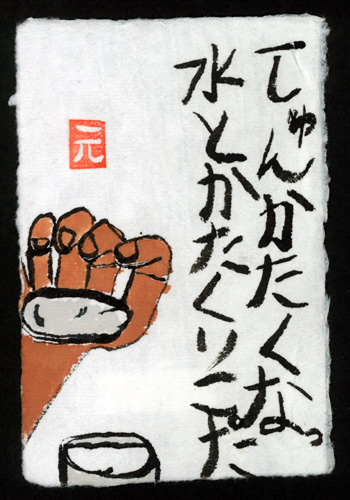 じゅんかたくなった
水とかたくりこだ
元